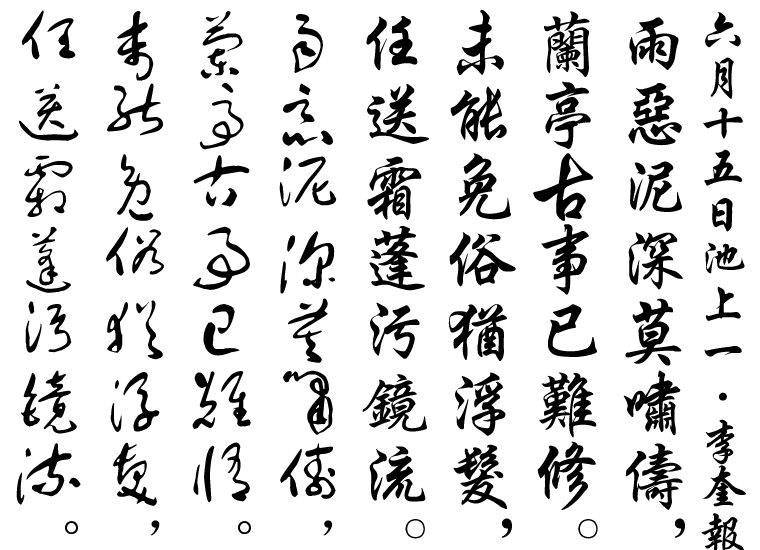 六月十五日池上一・李奎報
雨惡泥深莫嘯儔，
蘭亭古事已難修。
未能免俗猶浮髮，
任送霜蓬污鏡流。
雨惡泥深莫嘯儔，
蘭亭古事已難修。
未能免俗猶浮髮，
任送霜蓬污鏡流。